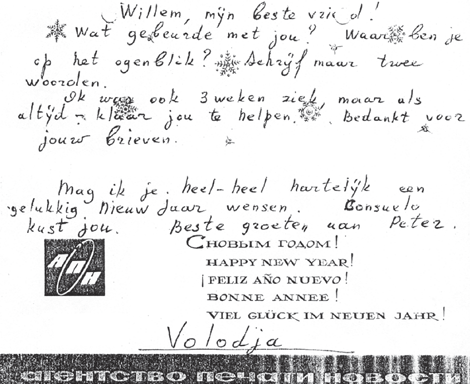 Willem, mijn beste vriend!
Wat gebeurde met jou? Waar ben je
op het ogenblik? Schrijf maar twee
woorden.
Ik was ook 3 weken ziek, maar als
altijd - klaar jou te helpen. Bedankt voor
jouw brieven.
Mag ik je heel-heel hartelijk een
gelukkig Nieuw Jaar wensen. Consuelo
kust jou. Beste groeten aan Peter.
АПН
С НОВЫМ ГОДОМ!
HAPPY NEW YEAR!
¡FELIZ AÑO NUEVO!
BONNE ANNEE!
VIEL GLÜCK IM NEUEN JAHR!
Volodja
агентство печати новости